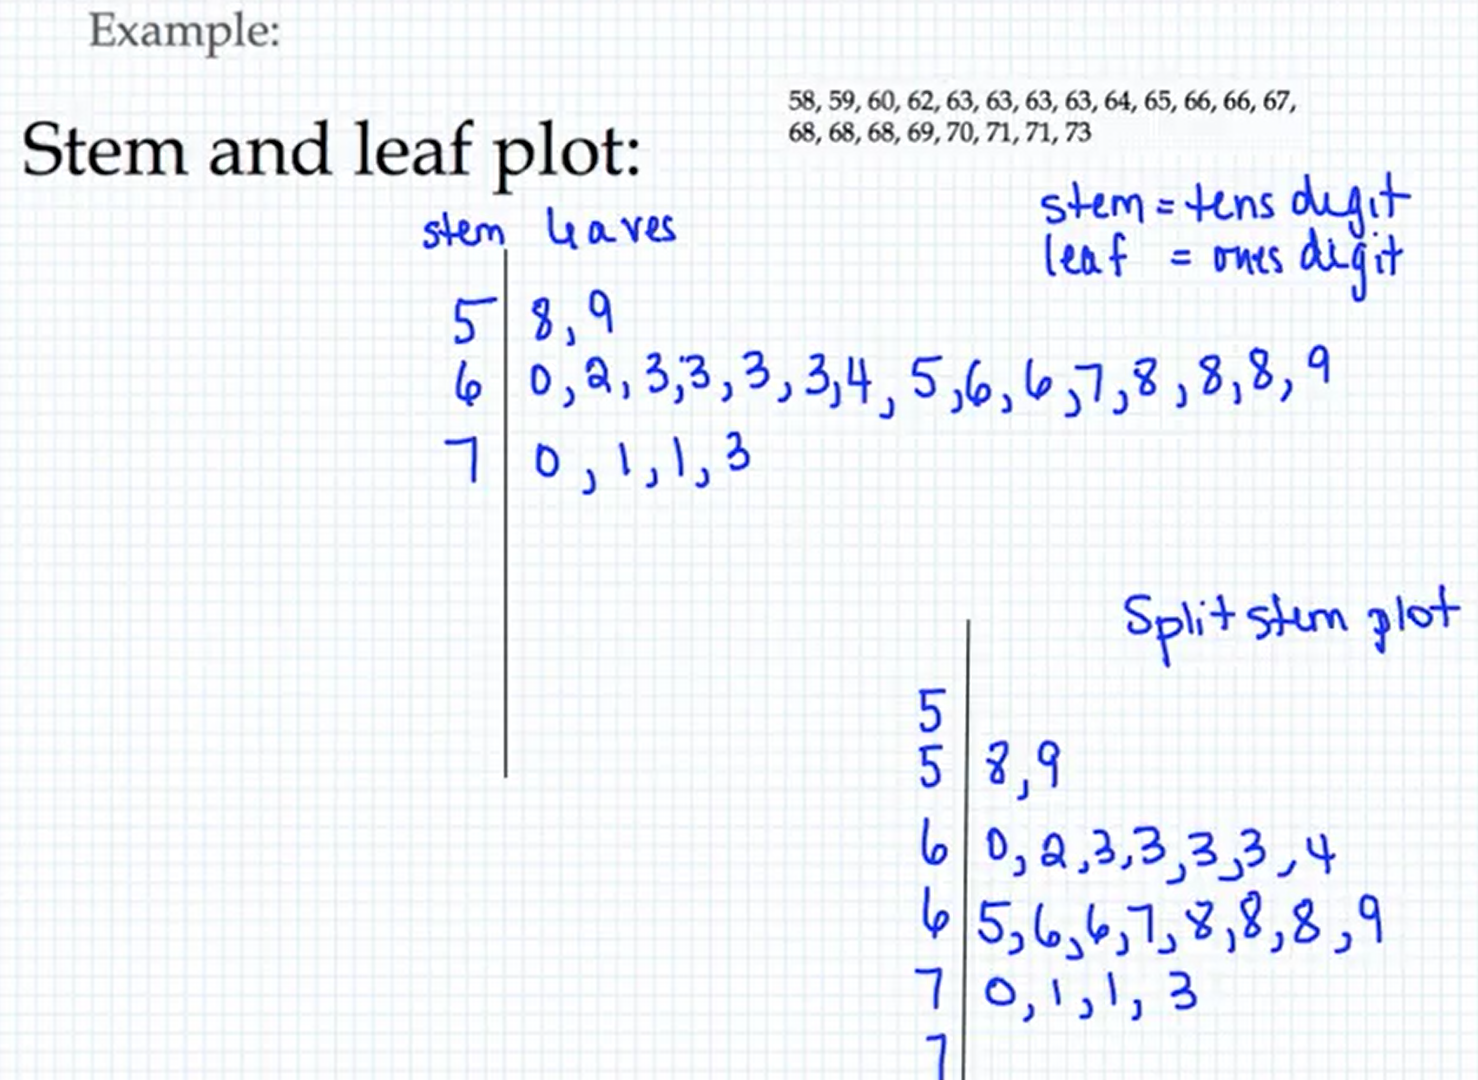 Example:
58, 59, 60, 62, 63, 63, 63, 63, 64, 65, 66, 66, 67,
68, 68, 68, 69, 70, 71, 71, 73
Stem and leaf plot:
stem = tens digit
leaf = ones digit
stem leaves
5 8, 9
6 0, 2, 3, 3, 3, 3, 4, 5, 6, 6, 7, 8, 8, 8, 9
7 0, 1, 1, 3
Split stem plot
5
5 8, 9
6 0, 2, 3, 3, 3, 3, 4
6 5, 6, 6, 7, 8, 8, 8, 9
7 0, 1, 1, 3
7